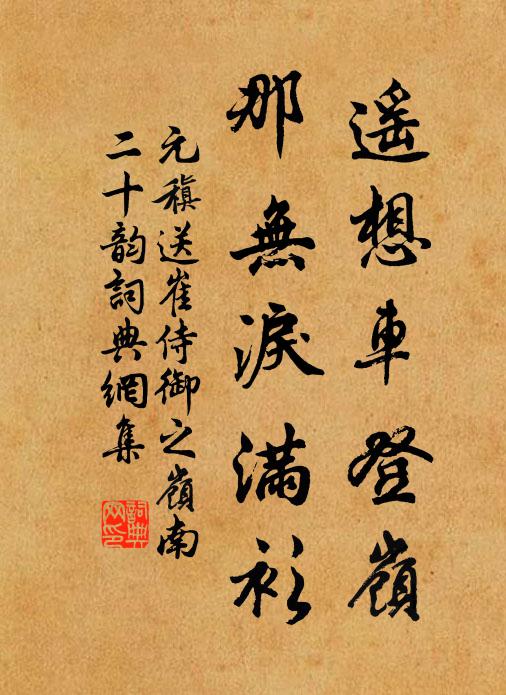 遥想車登嶺
那無淚滿衫
元稹送崔侍御之嶺南
二十韵詞典網集
詞典网印